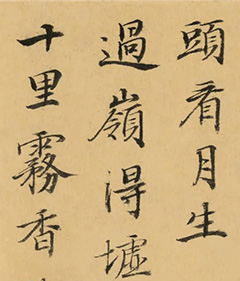 頭看月生
過嶺得墟
十里霧香